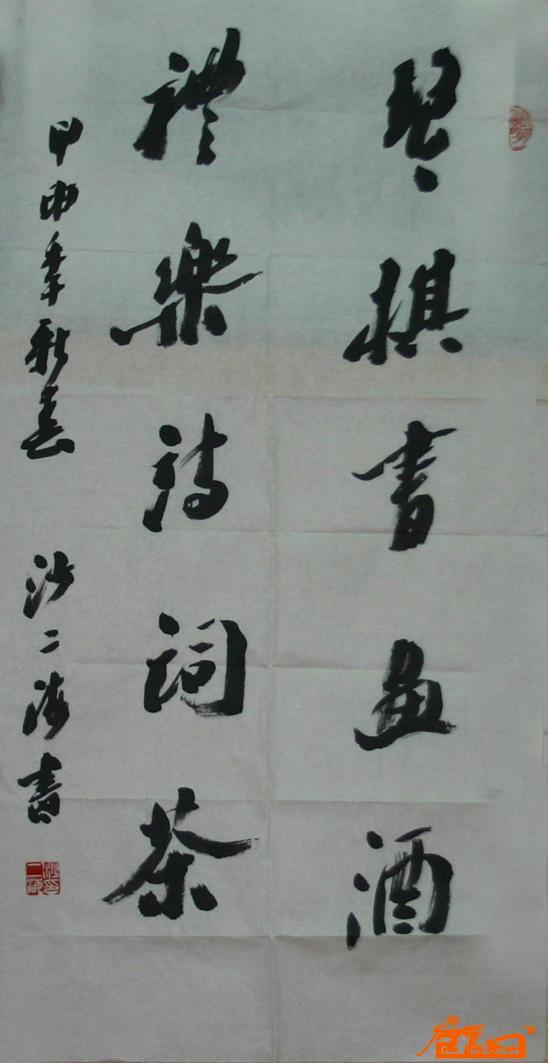 琴棋書畫酒
禮樂詩詞茶
甲申年新春 沙二海書